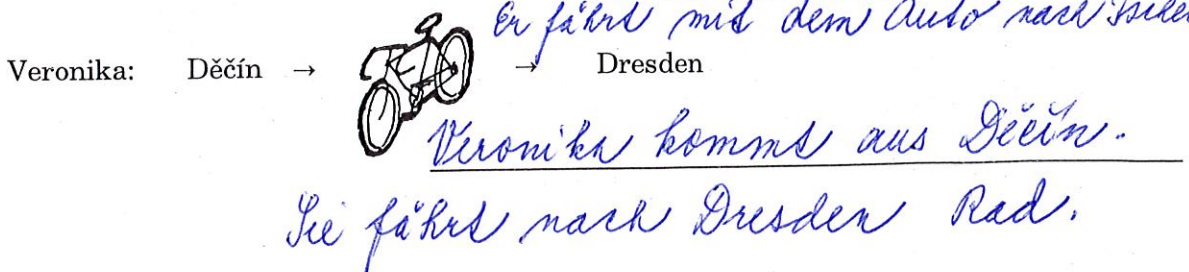 Er fährt mit dem Auto nach
Veronika: Děčín → → Dresden
Veronika kommt aus Děčín.
Sie fährt nach Dresden Rad.